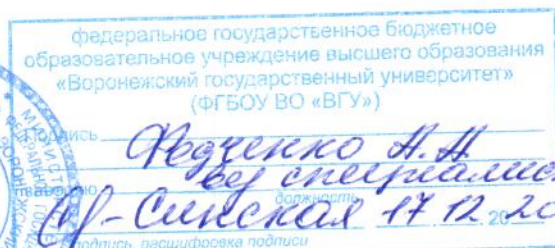 федеральное государственное бюджетное
образовательное учреждение высшего образования
«Воронежский государственный университет»
(ФГБОУ ВО «ВГУ»)
Подпись Федченко А.А.
вед специалис
должность
17 12 20 20
подпись, расшифровка подписи